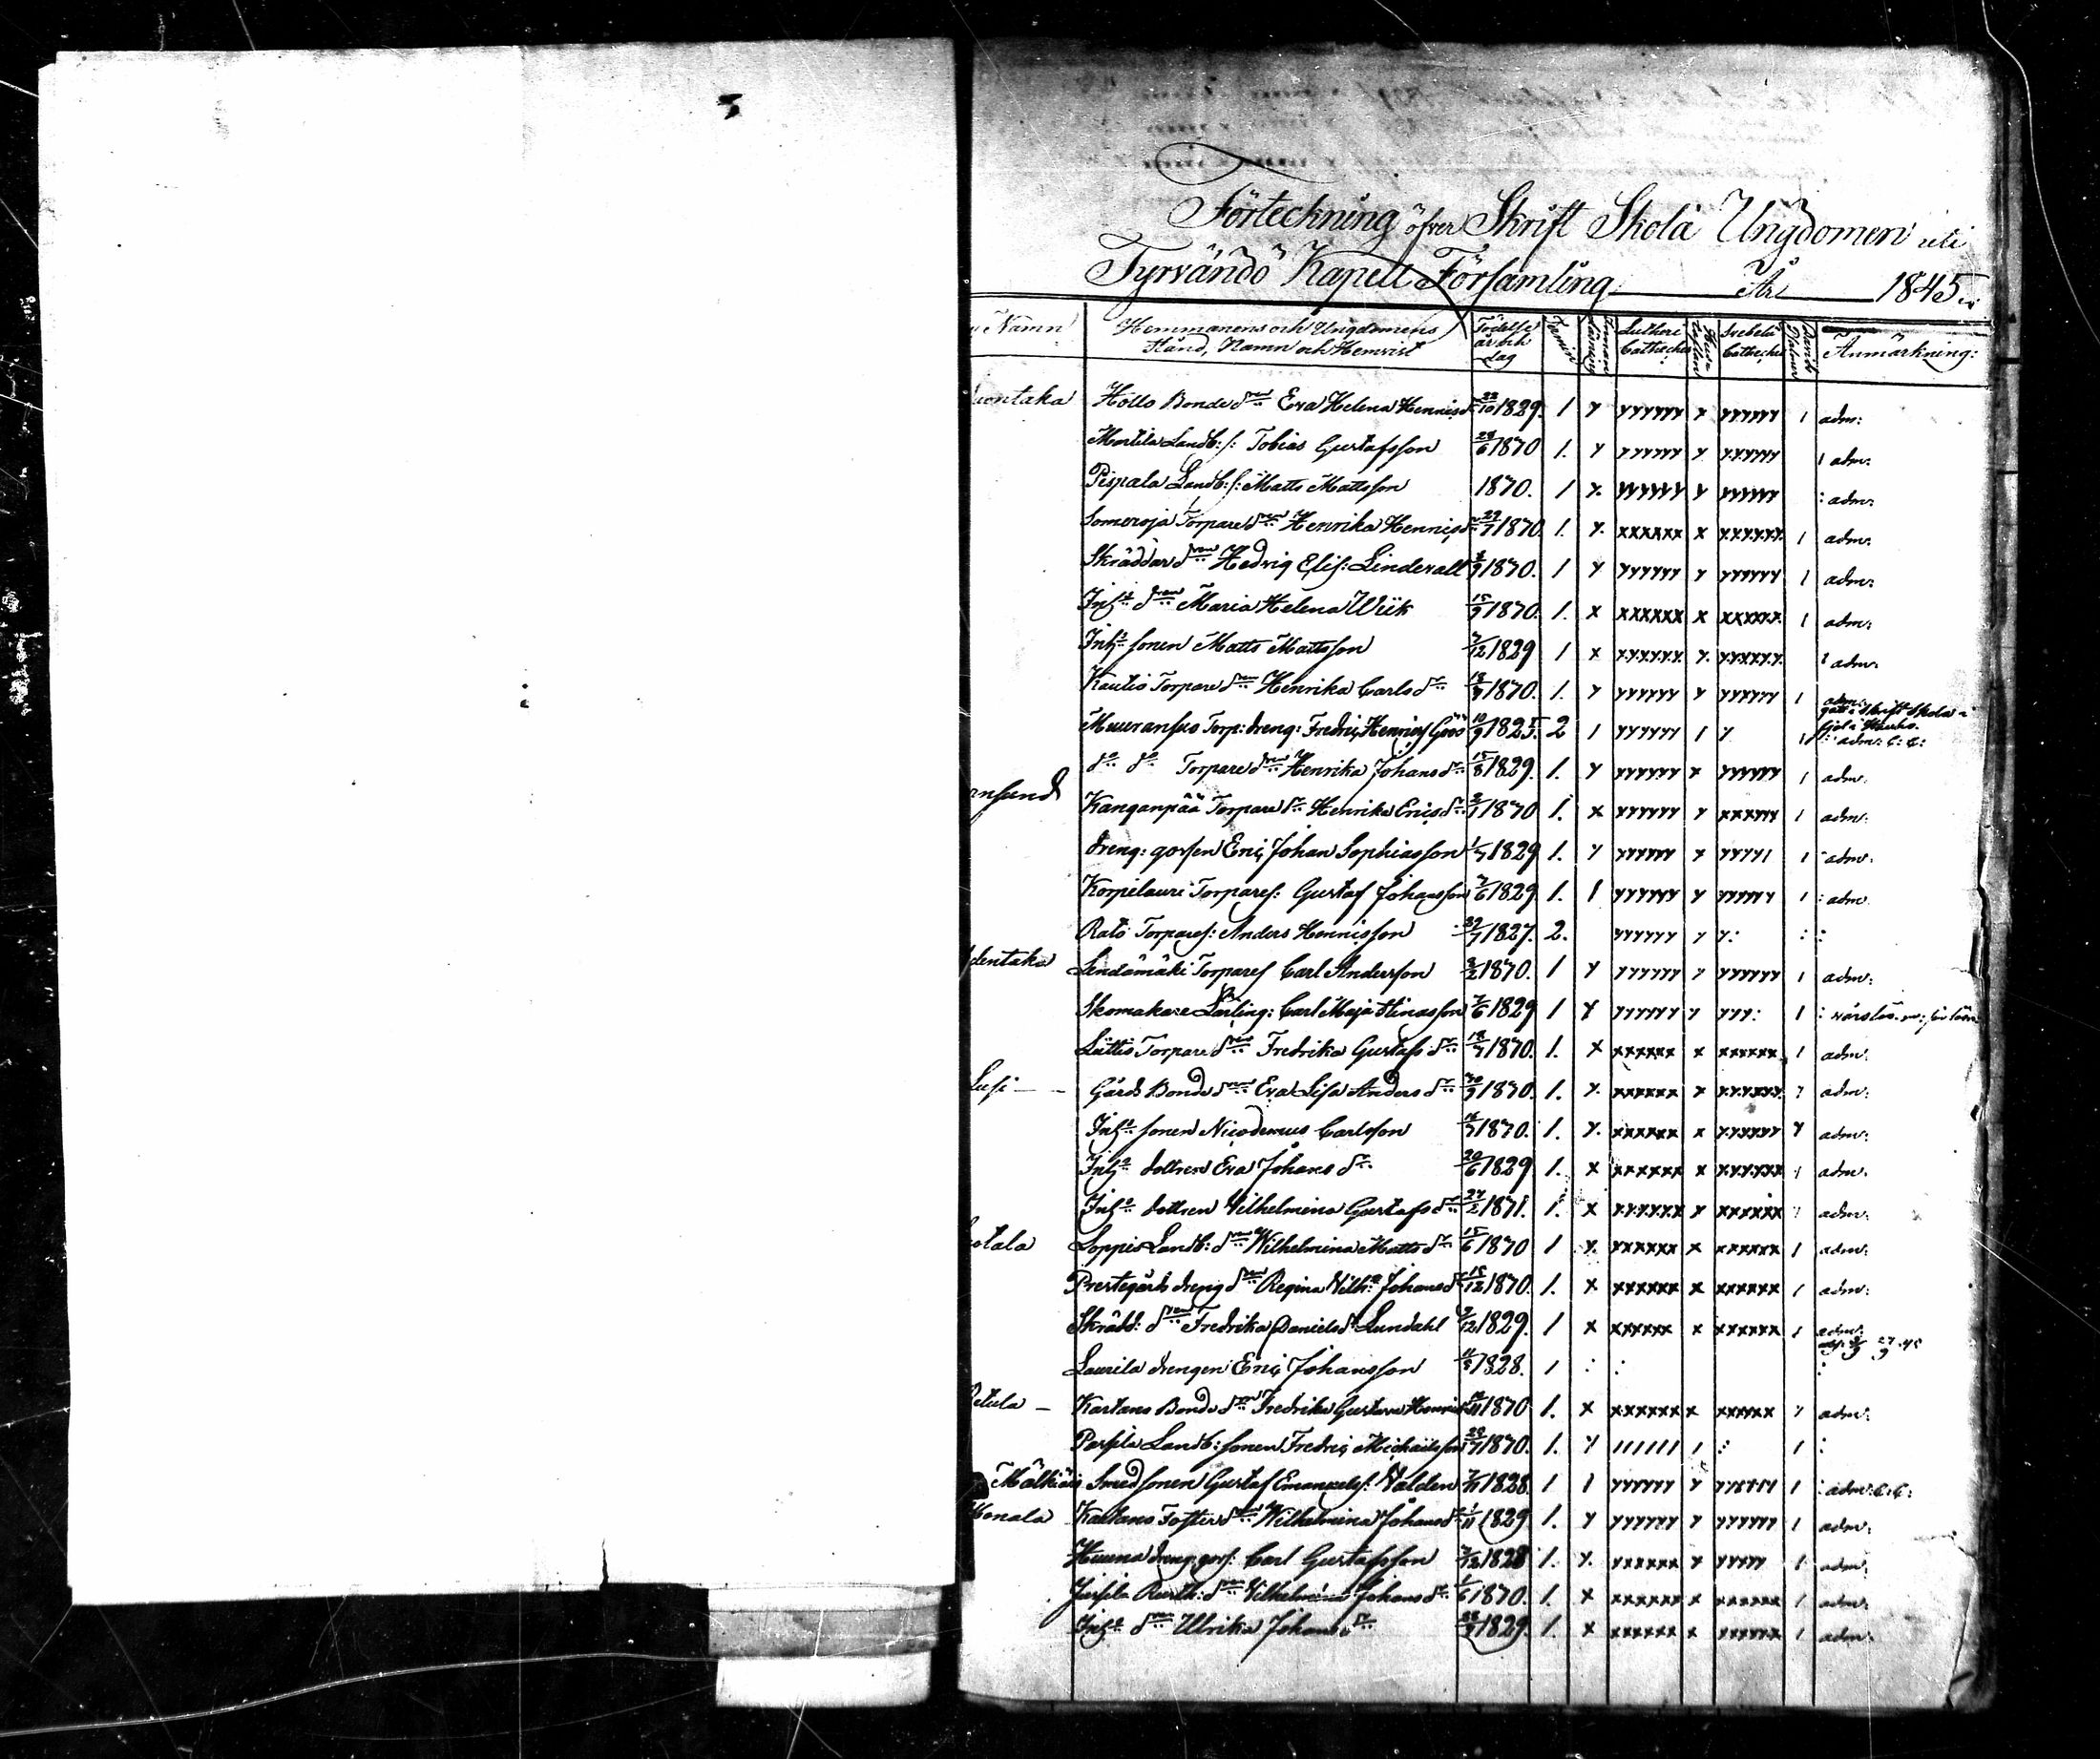 Förteckning öfver Skrift Skola Ungdomen uti
Tyrvändö Kapell Församling År 1845
Namn Hemmanens och Ungdomens Stånd, Namn och Hemvist Födelse år och dag Termin Innan läsning Lutheri Catheches Hus taflan Svebelii Catheches Davids Psalmer Anmärkning:
Hollo Bonde d:ren Eva Helena Henrics d:r 22/10 1829. 1 y yyyyyy y yyyyyy 1 adm:
Martila Landb: s: Tobias Gustafsson 28/6 1830 1. y yyyyyy y yyyyyy 1 adm:
Pispala Landb: s: Matts Mattsson 1830. 1 y. yyyyyy y yyyyyy : adm:
Someroja Torpare d:ren Henrika Henrics d:r 29/7 1830. 1. y. xxxxxx x yyyyyy 1 adm:
Skräddar d:ren Hedvig Elis: Linderall 1830. 1 y yyyyyy y yyyyyy 1 adm:
Inh:s d:ren Maria Helena Wiik 15/9 1830. 1. x xxxxxx x xxxxxx 1 adm:
Inh:s sonen Matts Mattsson 7/12 1829 1 x yyyyyy y. yyyyyy 1 adm:
Kautio Torpare d:ren Henrika Carls d:r 1830. 1. y yyyyyy y yyyyyy 1 adm:
Muuransuo Torp: dreng: Fredric Henrics Göös 10/9 1825. 2 1 yyyyyy 1 y 1 gått i Skrift Skola i
adm: C: C:
d:o d:o Torpare d:ren Henrika Johans d:r 15/8 1829. 1. y yyyyyy x yyyyyy 1 adm:
Kanganpää Torpare d:r Henrika Erics d:r 1830 1. x yyyyyy y xxxyyy 1 adm:
dreng: gossen Eric Johan Sophiasson 1/7 1829 1. y yyyyyy x yyyyy 1 adm:
Korpilauri Torpares: Gustaf Johansson 7/6 1829. 1. 1 yyyyyy y yyyyyy 1 : adm
Rato Torpares: Anders Henricsson 1827. 2. yyyyyy y y: : :
Lendämäki Torpares Carl Andersson 3/2 1830. 1 y yyyyyy y yyyyyy 1 adm:
Skomakare Lärling: Carl Maja Stinasson 7/6 1829 1 y yyyyyy y yyy: 1
Torpare d:ren Fredrika Gustafs d:r 18/7 1830. 1. x xxxxxx x xxxxxx 1 adm:
Lusi — Gårds Bonde d:ren Eva Lisa Anders d:r 30/9 1830. 1. y. xxxxxx x yyyyyy y adm:
Inh:s sonen Nicodemus Carlsson 1830. 1. y. xxxxxx x yyyyyy y adm:
Inh:s dottren Eva Johans d:r 20/6 1829. 1. x xxxxxx x xxxxxx 1 adm:
Inh:s dottren Vilhelmina Gustafs d:r 27/2 1831. 1. x xxxxxx x xxxxxx y adm:
Loppis Landb: d:ren Wilhelmina Matts d:r 15/6 1830 1 y. xxxxxx x xxxxxx 1 adm:
Prestegårds dreng d:ren Regina Vilh:a Johans d:r 15/12 1830. 1. x xxxxxx x xxxxxx 1 adm:
Skrädd: d:ren Fredrika Daniels d:r Lundahl 9/12 1829. 1 x xxxxxx x xxxxxx 1 adm:
Laurila drengen Eric Johansson 11/8 1828. 1 : : :
Kartano Bonde d:ren Fredrika Gustava Henrics 1830 1. x xxxxxx x xxxxxx y adm:
Passila Landb: sonen Fredric Michaelsson 29/7 1830. 1. y 111111 1 : 1 :
Smed sonen Gustaf Emanuels: Valden 1828. 1 1 yyyyyy y yyyyyy 1 : adm: C: C:
Honala Kartano Foster d:ren Wilhelmina Johans d:r 1/11 1829 1. y yyyyyy y yyyyyy 1 adm:
Huuna dreng gos: Carl Gustafsson 7/12 1828 1. y. xxxxxx x yyyyy 1 adm:
d:ren Vilhelmina Johans d:r 1/6 1830. 1. x xxxxxx x xxxxxx 1 adm:
Inh:s d:ren Ulrika Johans d:r 1829. 1. x xxxxxx x xxxxxx 1 adm: